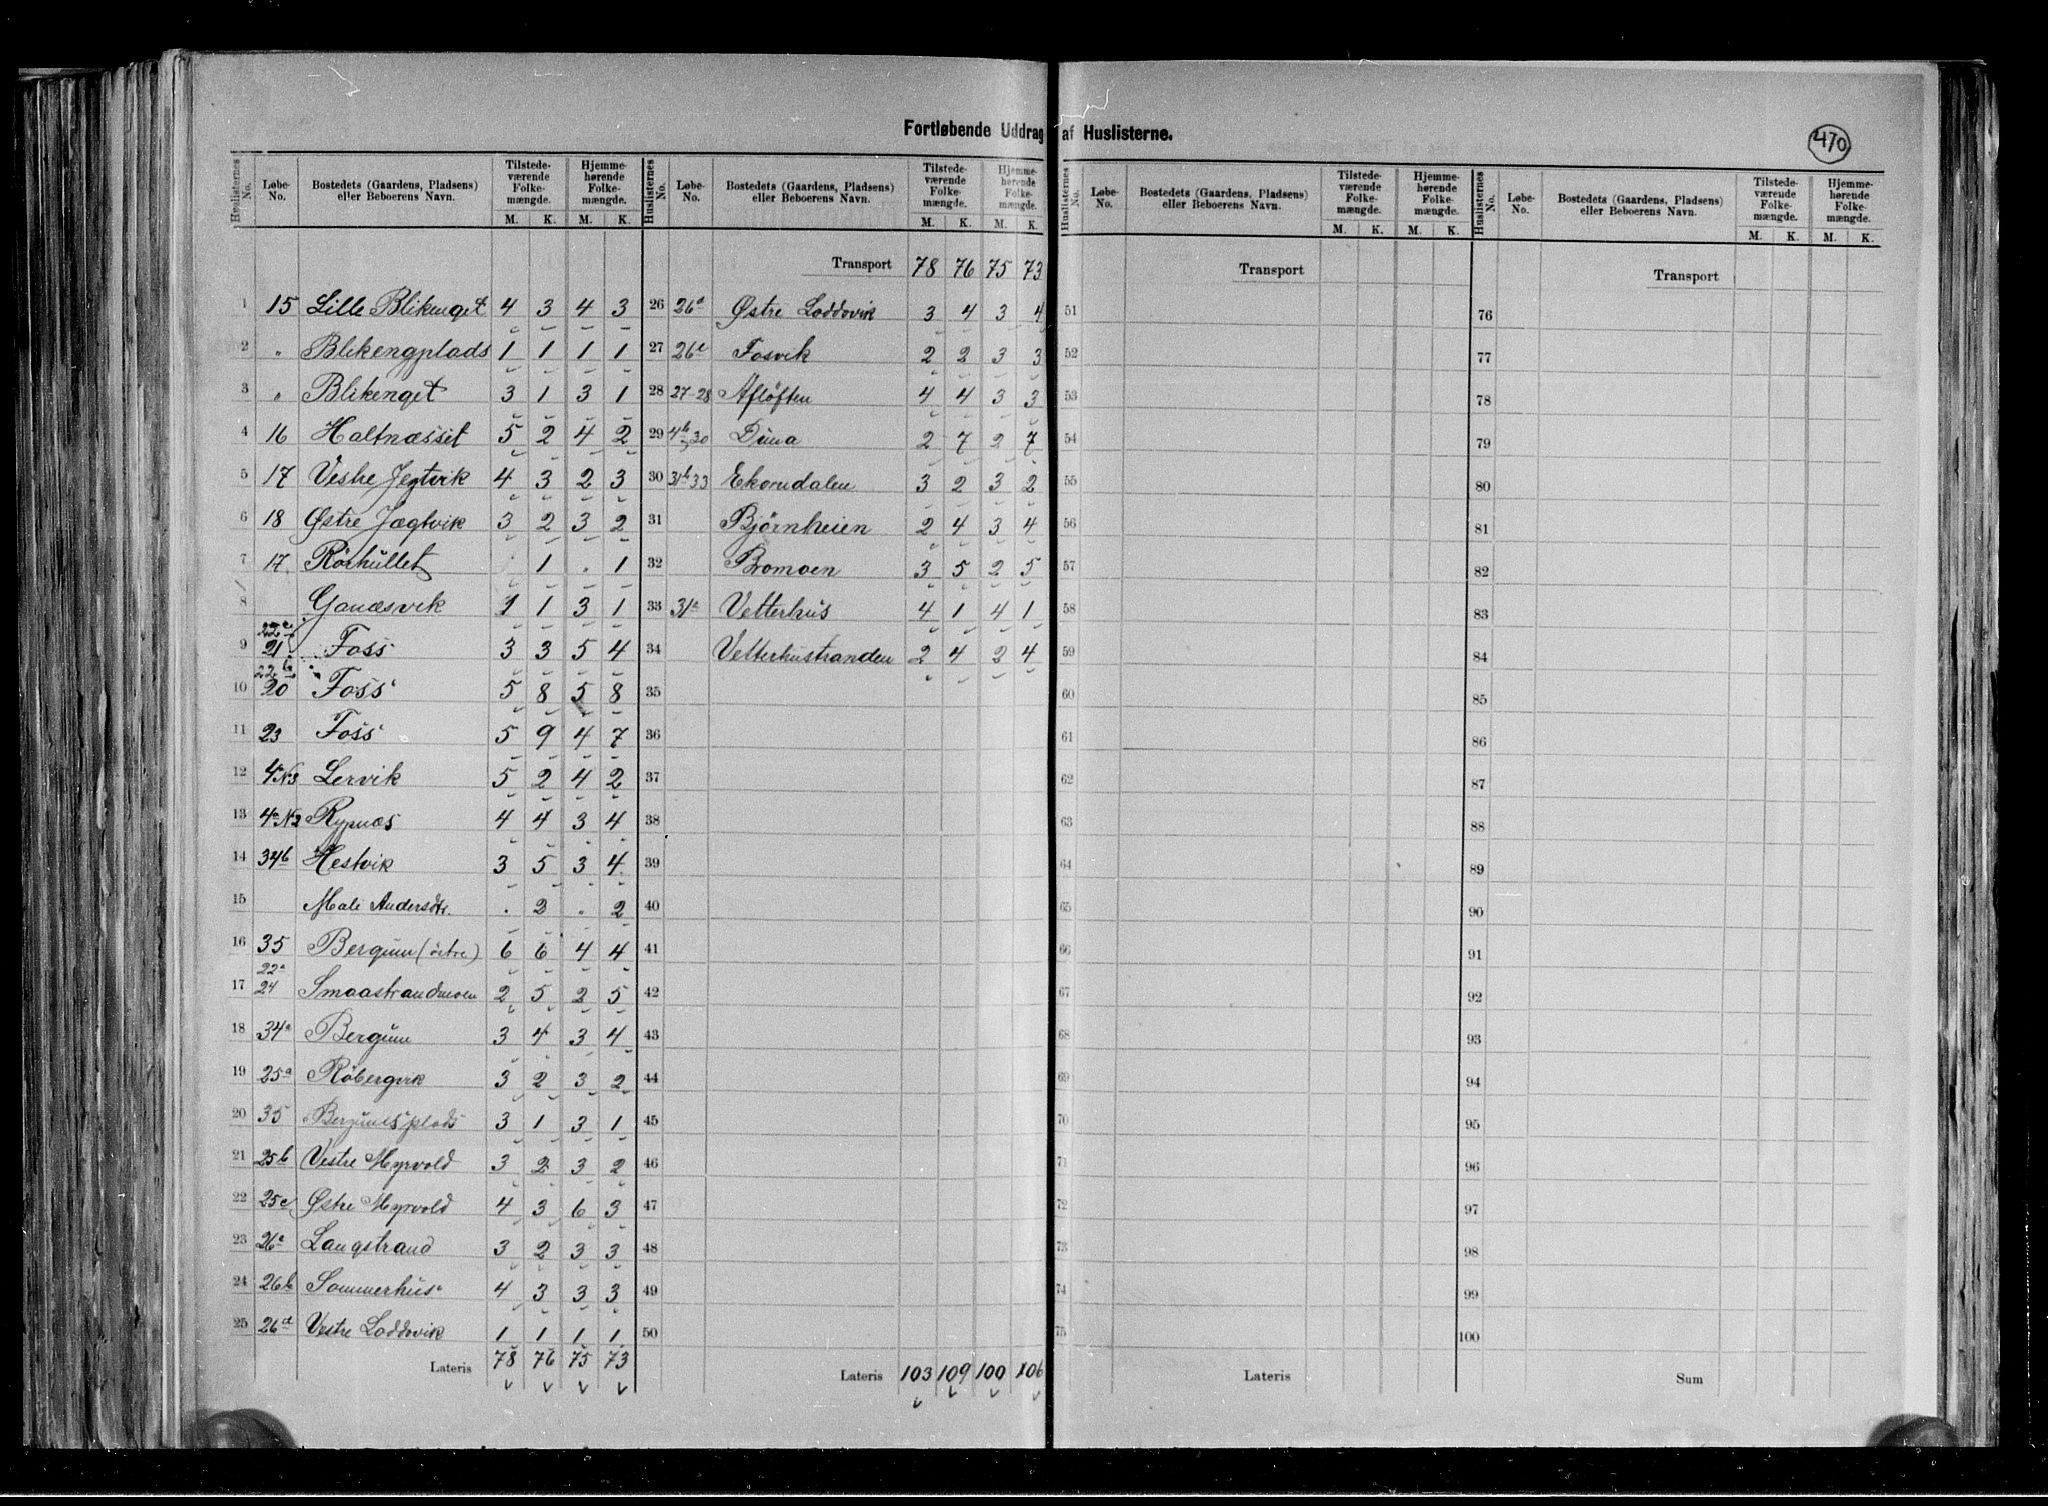 Fortløbende Uddrag af Huslisterne.
470
Huslisternes No. Løbe-No. Bostedets (Gaardens, Pladsens) eller Beboerens Navn. Tilstedeværende Folkemængde. M. K. Hjemmehørende Folkemængde. M. K.
1 15 Lille Blikenget 4 3 4 3
2 " Blikengplads 1 1 1 1
3 " Blikenget 3 1 3 1
4 16 Haltnæsset 5 2 4 2
5 17 Vestre Jegtvik 4 3 2 3
6 18 Østre Jægtvik 3 2 3 2
7 17 Rörhullet . 1 . 1
8 Ganæsvik 1 1 3 1
9 22c 21 Foss 3 3 5 4
10 22b 20 Foss 5 8 5 8
11 23 Foss 5 9 4 7
12 4a N3 Lervik 5 2 4 2
13 4a N2 Rypnæs 4 4 3 4
14 34b Hestvik 3 5 3 4
15 Mali Andersdtr. . 2 . 2
16 35 Bergum (östre) 6 6 4 4
17 22a 24 Smaastrandmoen 2 5 2 5
18 34a Bergum 3 4 3 4
19 25a Röbergvik 3 2 3 2
20 35 Bergumsplads 3 1 3 1
21 25b Vestre Myrvold 3 2 3 2
22 25c Østre Myrvold 4 3 6 3
23 26a Langstrand 3 2 3 3
24 26b Sommerhus 4 3 3 3
25 26d Vestre Loddovik 1 1 1 1
Lateris 78 76 75 73
Huslisternes No. Løbe-No. Bostedets (Gaardens, Pladsens) eller Beboerens Navn. Tilstedeværende Folkemængde. M. K. Hjemmehørende Folkemængde. M. K.
Transport 78 76 75 73
26 26d Østre Loddovik 3 4 3 4
27 26c Fosvik 2 2 3 3
28 27-28 Afløften 4 4 3 3
29 4b 30 Duna 2 7 2 7
30 31b 33 Ekorndalen 3 2 3 2
31 Bjørnheien 2 4 3 4
32 Bromoen 3 5 2 5
33 31a Vetterhus 4 1 4 1
34 Vetterhustranden 2 4 2 4
35
36
37
38
39
40
41
42
43
44
45
46
47
48
49
50
Lateris 103 109 100 106
Huslisternes No. Løbe-No. Bostedets (Gaardens, Pladsens) eller Beboerens Navn. Tilstedeværende Folkemængde. M. K. Hjemmehørende Folkemængde. M. K.
Transport
51
52
53
54
55
56
57
58
59
60
61
62
63
64
65
66
67
68
69
70
71
72
73
74
75
Lateris
Huslisternes No. Løbe-No. Bostedets (Gaardens, Pladsens) eller Beboerens Navn. Tilstedeværende Folkemængde. M. K. Hjemmehørende Folkemængde. M. K.
Transport
76
77
78
79
80
81
82
83
84
85
86
87
88
89
90
91
92
93
94
95
96
97
98
99
100
Sum